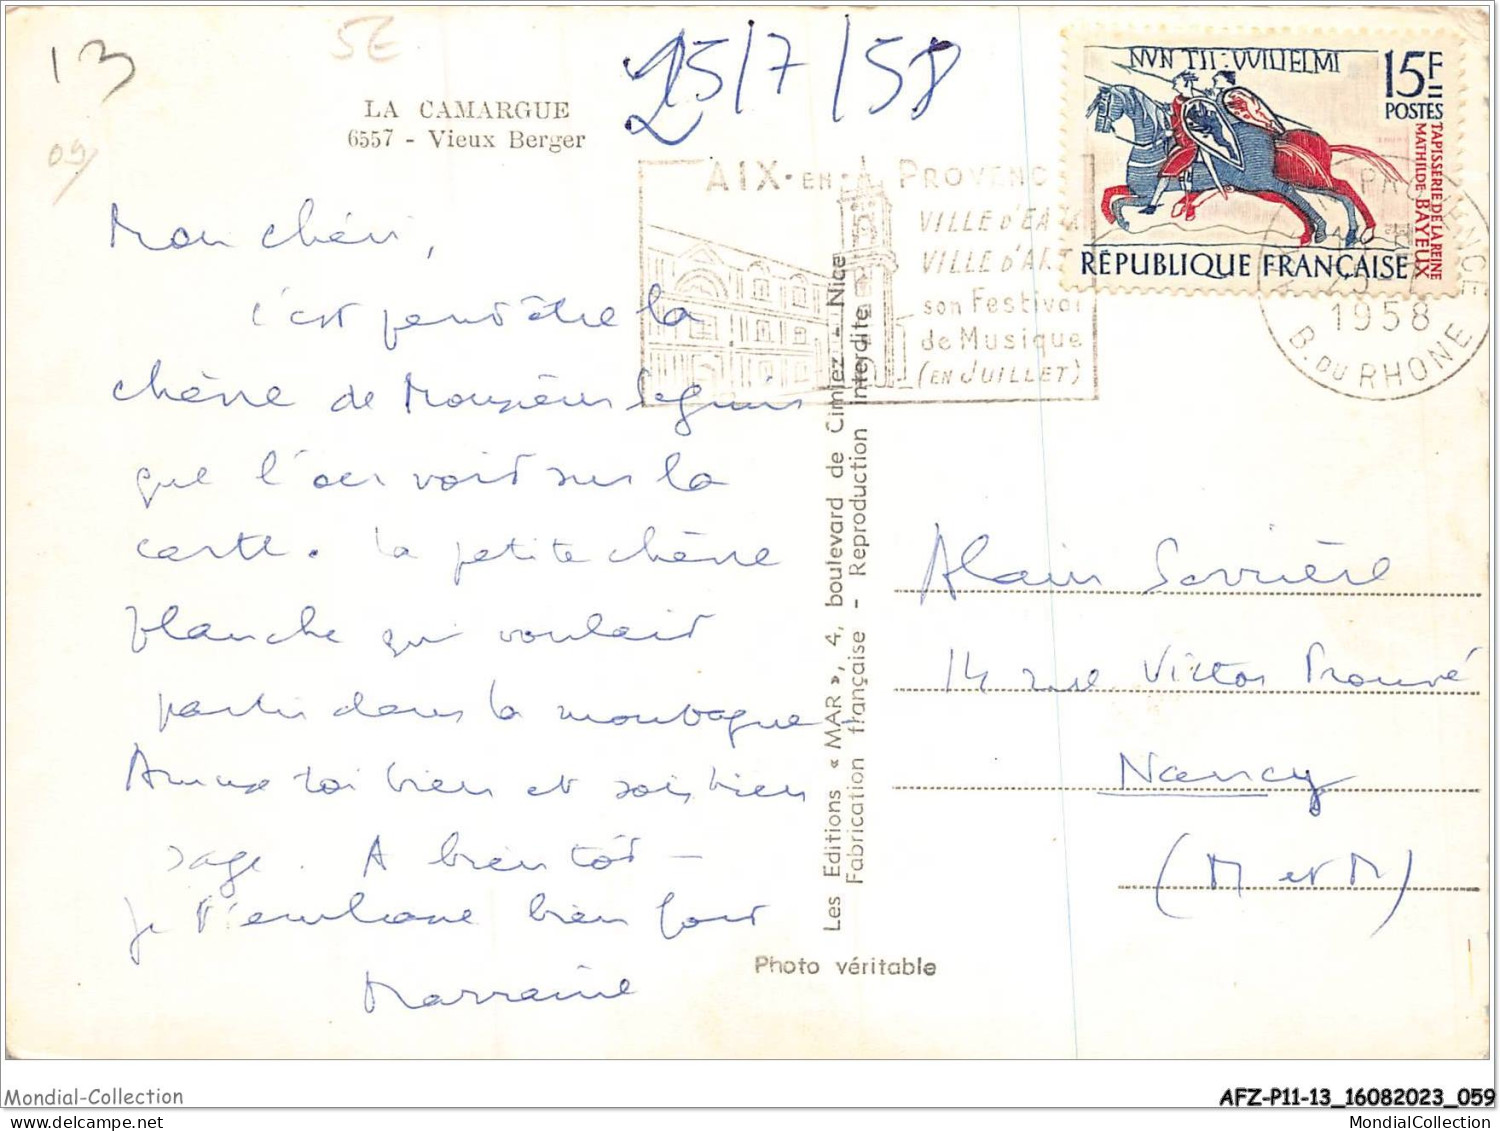 13
5E
09/
25/7/58
LA CAMARGUE
6557 - Vieux Berger
Mon chéri,
c'est peut être la
chèvre de Monsieur Seguin
que l'on voit sur la
carte. La petite chèvre
blanche qui voulait
partir dans la montagne -
Amuse toi bien et sois bien
sage. A bientôt -
je t'embrasse bien fort
Marraine
AIX-EN-PROVENCE
VILLE D'EAU
VILLE D'ART
son Festival
de Musique
(EN JUILLET)
NVN TII : VVILIELMI
15F
POSTES
TAPISSERIE DE LA REINE
MATHILDE BAYEUX
RÉPUBLIQUE FRANÇAISE
1958
B. DU RHONE
Les Editions « MAR », 4, boulevard de Cimiez - Nice
Fabrication française - Reproduction interdite
Photo véritable
Alain Serrière
14 rue Victor Prouvé
Nancy
(M et M)
Mondial-Collection
delcampe.net
AFZ-P11-13_16082023_059
MondialCollection